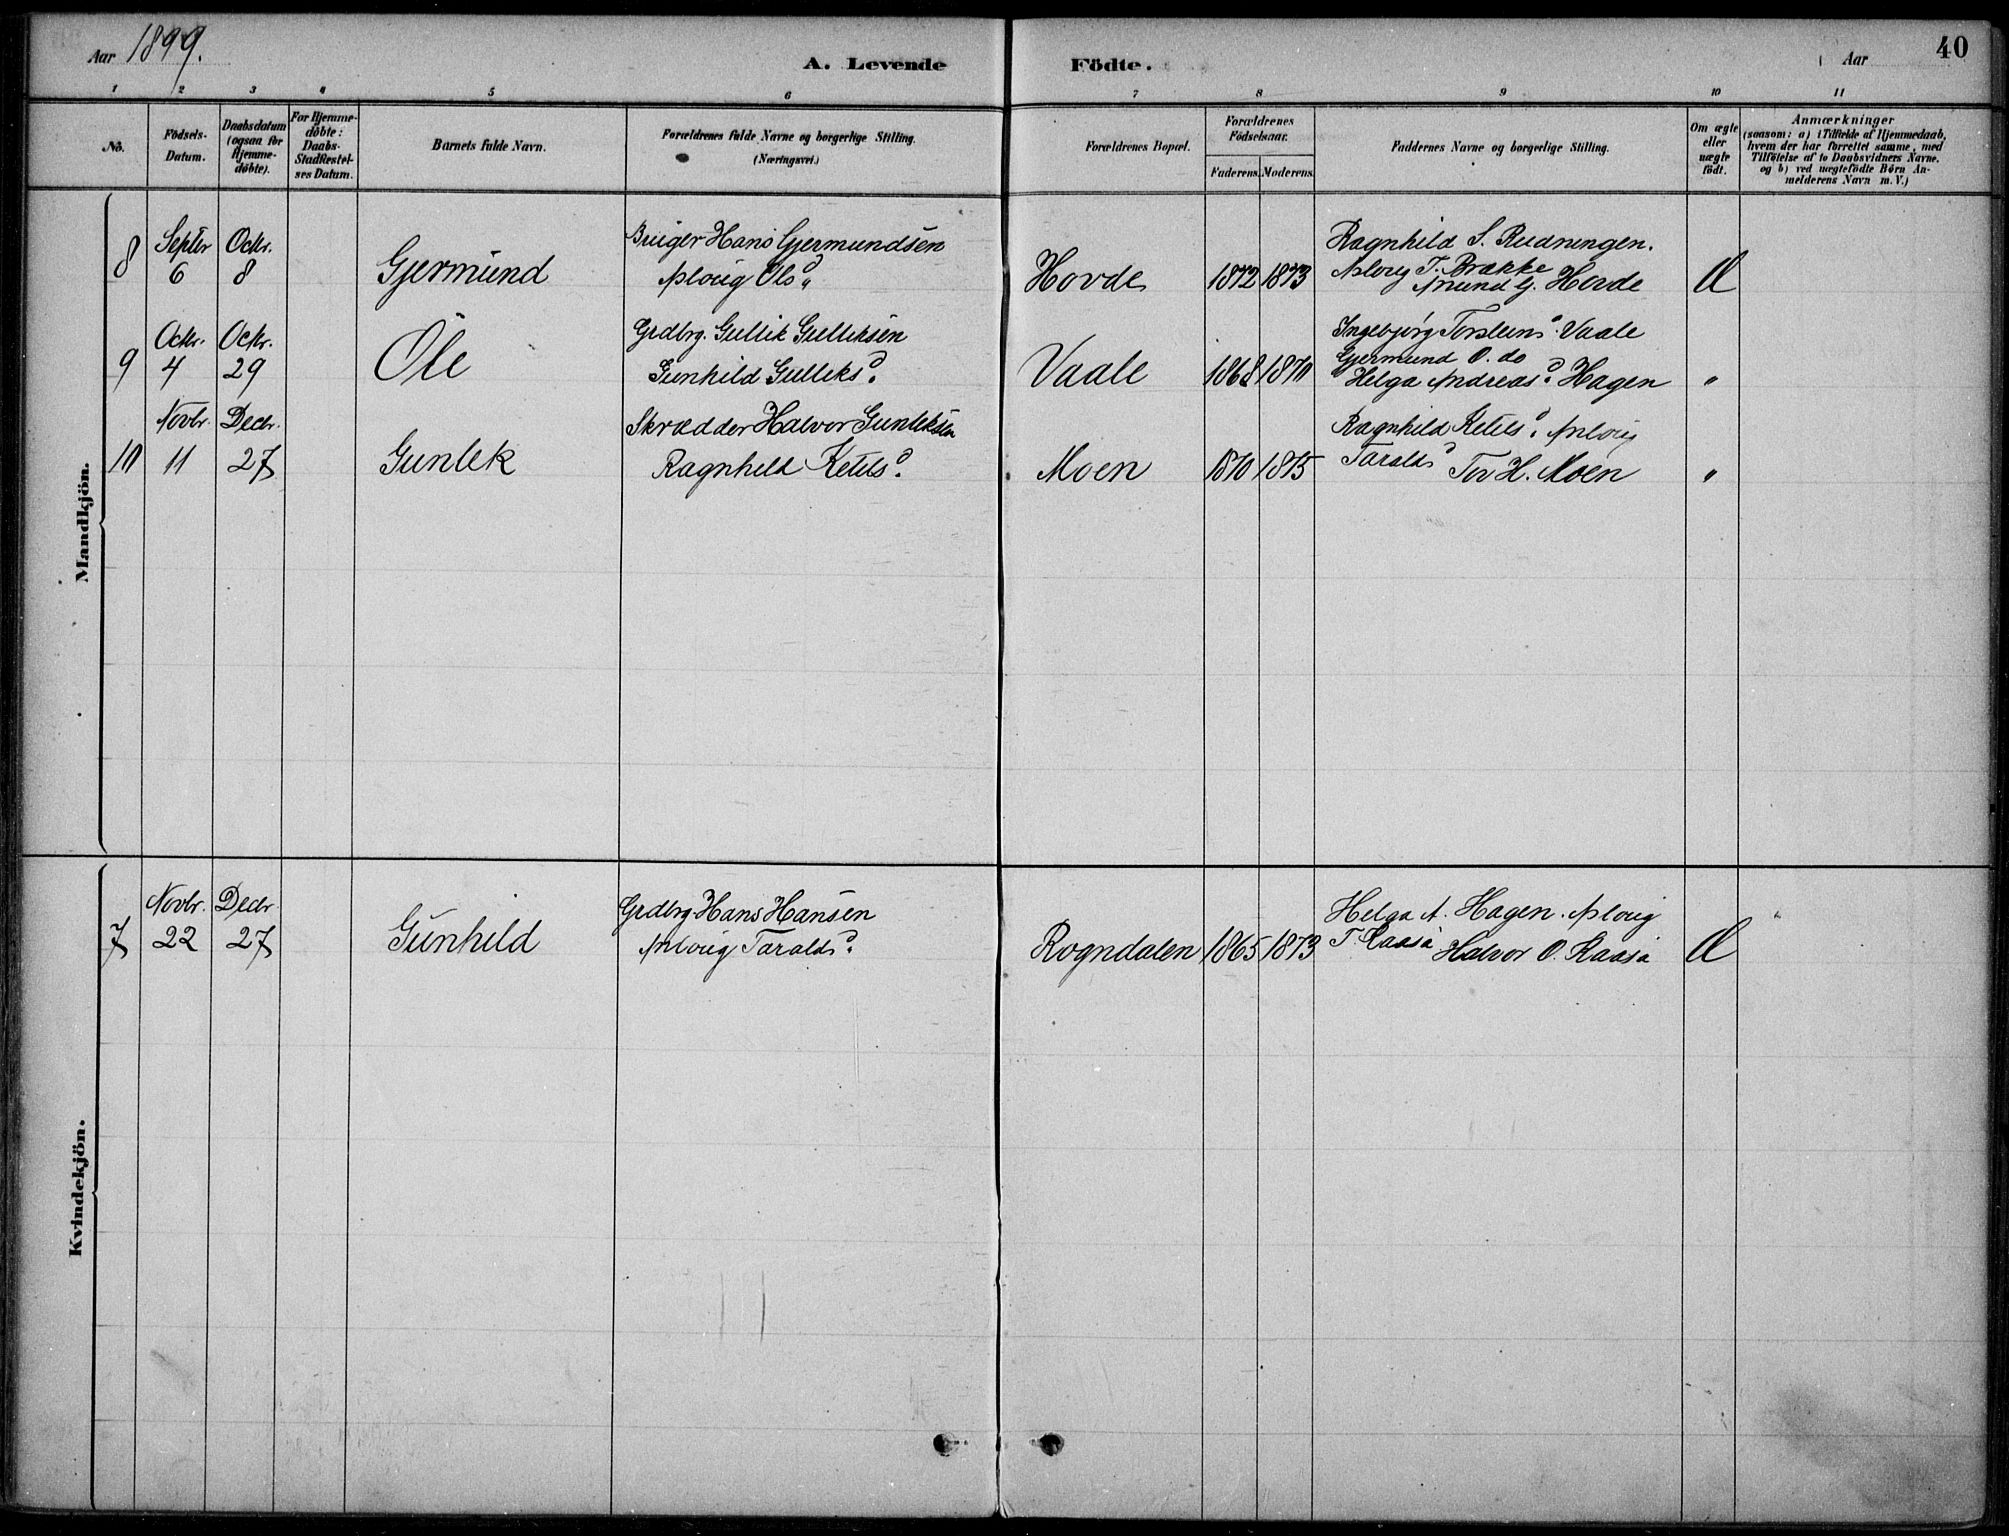 Aar 1899.
A. Levende Födte.
Aar
40
1 2 3 4 5 6 7 8 9 10 11
No.
Födsels-Datum.
Daabsdatum (ogsaa for Hjemme-døbte).
For Hjemme-døbte: Daabs-Stadfæstel-ses Datum.
Barnets fulde Navn.
Forældrenes fulde Navne og borgerlige Stilling.
(Næringsvei.)
Forældrenes Bopæl.
Forældrenes Fødselsaar.
Faderens. Moderens.
Faddernes Navne og borgerlige Stilling.
Om ægte eller uægte født.
Anmærkninger
(saasom: a) i Tilfælde af Hjemmedaab, hvem der har forrettet samme, med Tilföielse af to Daabsvidners Navne. og b) ved uægtefödte Börn An-melderens Navn m. V.)
Mandkjön.
Septbr Octbr. Bruger Hans Gjermundsen Ragnhild S. Rudningen.
8 6 8 Gjermund Aslaug Olsd. Hovde 1872 1873 Aslaug T. Brække Anund G. Hovde Æ
Octbr. Octbr. Grdbrg. Gullik Gulliksen Ingebjørg Torsteinsd. Vaale
9 4 29 Ole Gunhild Gulleksd. Vaale 1868 1870 Gjermund O. do Helga Andreasd. Hagen "
Novbr. Decbr. Skrædder Halvor Gunleksen Ragnhild Ketilsd. Aslaug
10 11 27 Gunlek Ragnhild Ketilsd. Moen 1870 1875 Taraldsd Tov H. Moen "
Kvindekjön.
Novbr. Decbr. Grdbrg. Hans Hansen Helga A. Hagen. Aslaug
7 22 27 Gunhild Aslaug Taraldsd. Rogndalen 1865 1873 T. Kaasa Halvor O. Kaasa Æ